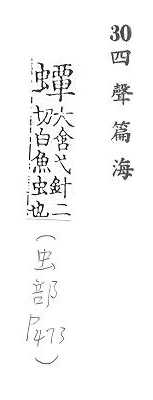 30四聲篇海
蟫大含弋針二
切白魚虫也
(虫部
P473)